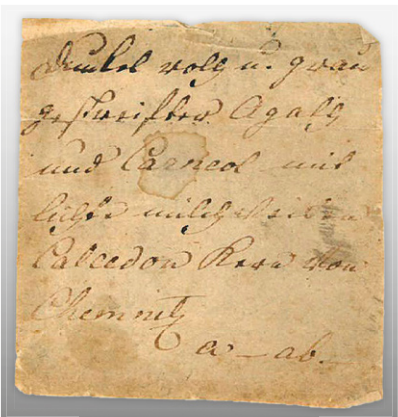 dunkel roth u. grau
gestreifter Agath
und Carneol mit
lichte milchweißen
Calcedon Kern von
Chemnitz
a – ab.